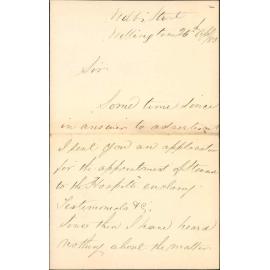 Street
Wellington 26th
Sir
Some time since
in answer to advertisemt
I sent you an application
for the appointment of Steward
to the Hospital enclosing
Testimonials &c;
Since then I have heard
nothing about the matter